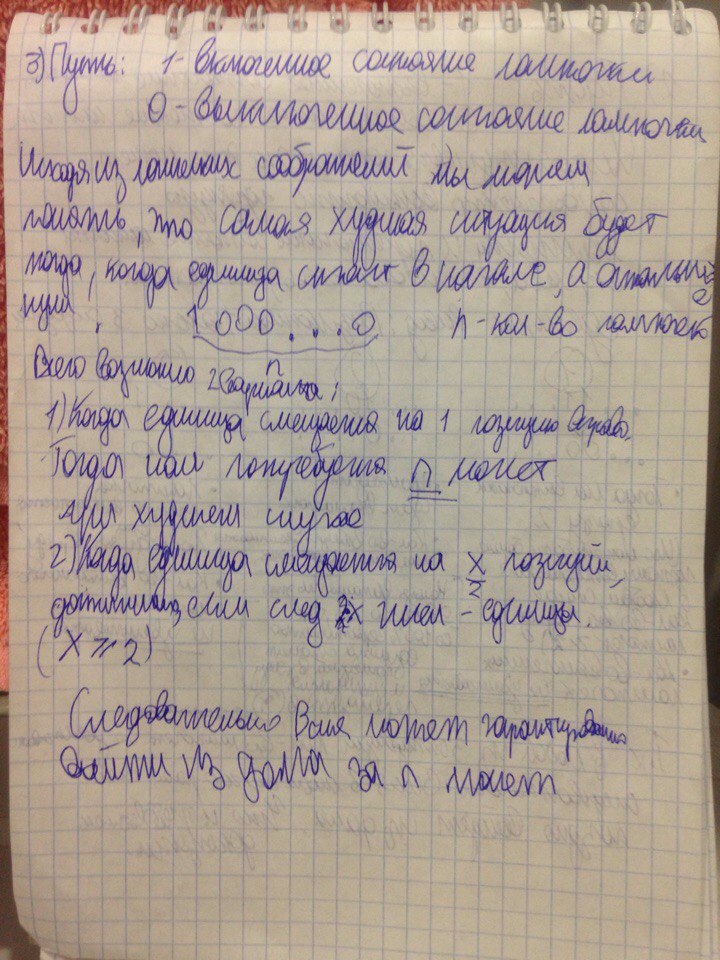 3) Путь: 1 - включенное состояние лампочки
0 - выключенное состояние лампочки
Исходя из соображений мы можем
понять, что самая худшая ситуация будет
тогда, когда единица стоит в начале, а остальные
нули. 1 000...0 n - кол-во лампочек
n
Всего возможно 2 варианта:
1) Когда единица смещается на 1 позицию вправо.
Тогда нам потребуется n монет
при худшем случае
2) Когда единица смещается на x/2 позиций,
если след x - единицы.
(x ⩾ 2)
Следовательно Вася может гарантированно
выйти из дома за n монет